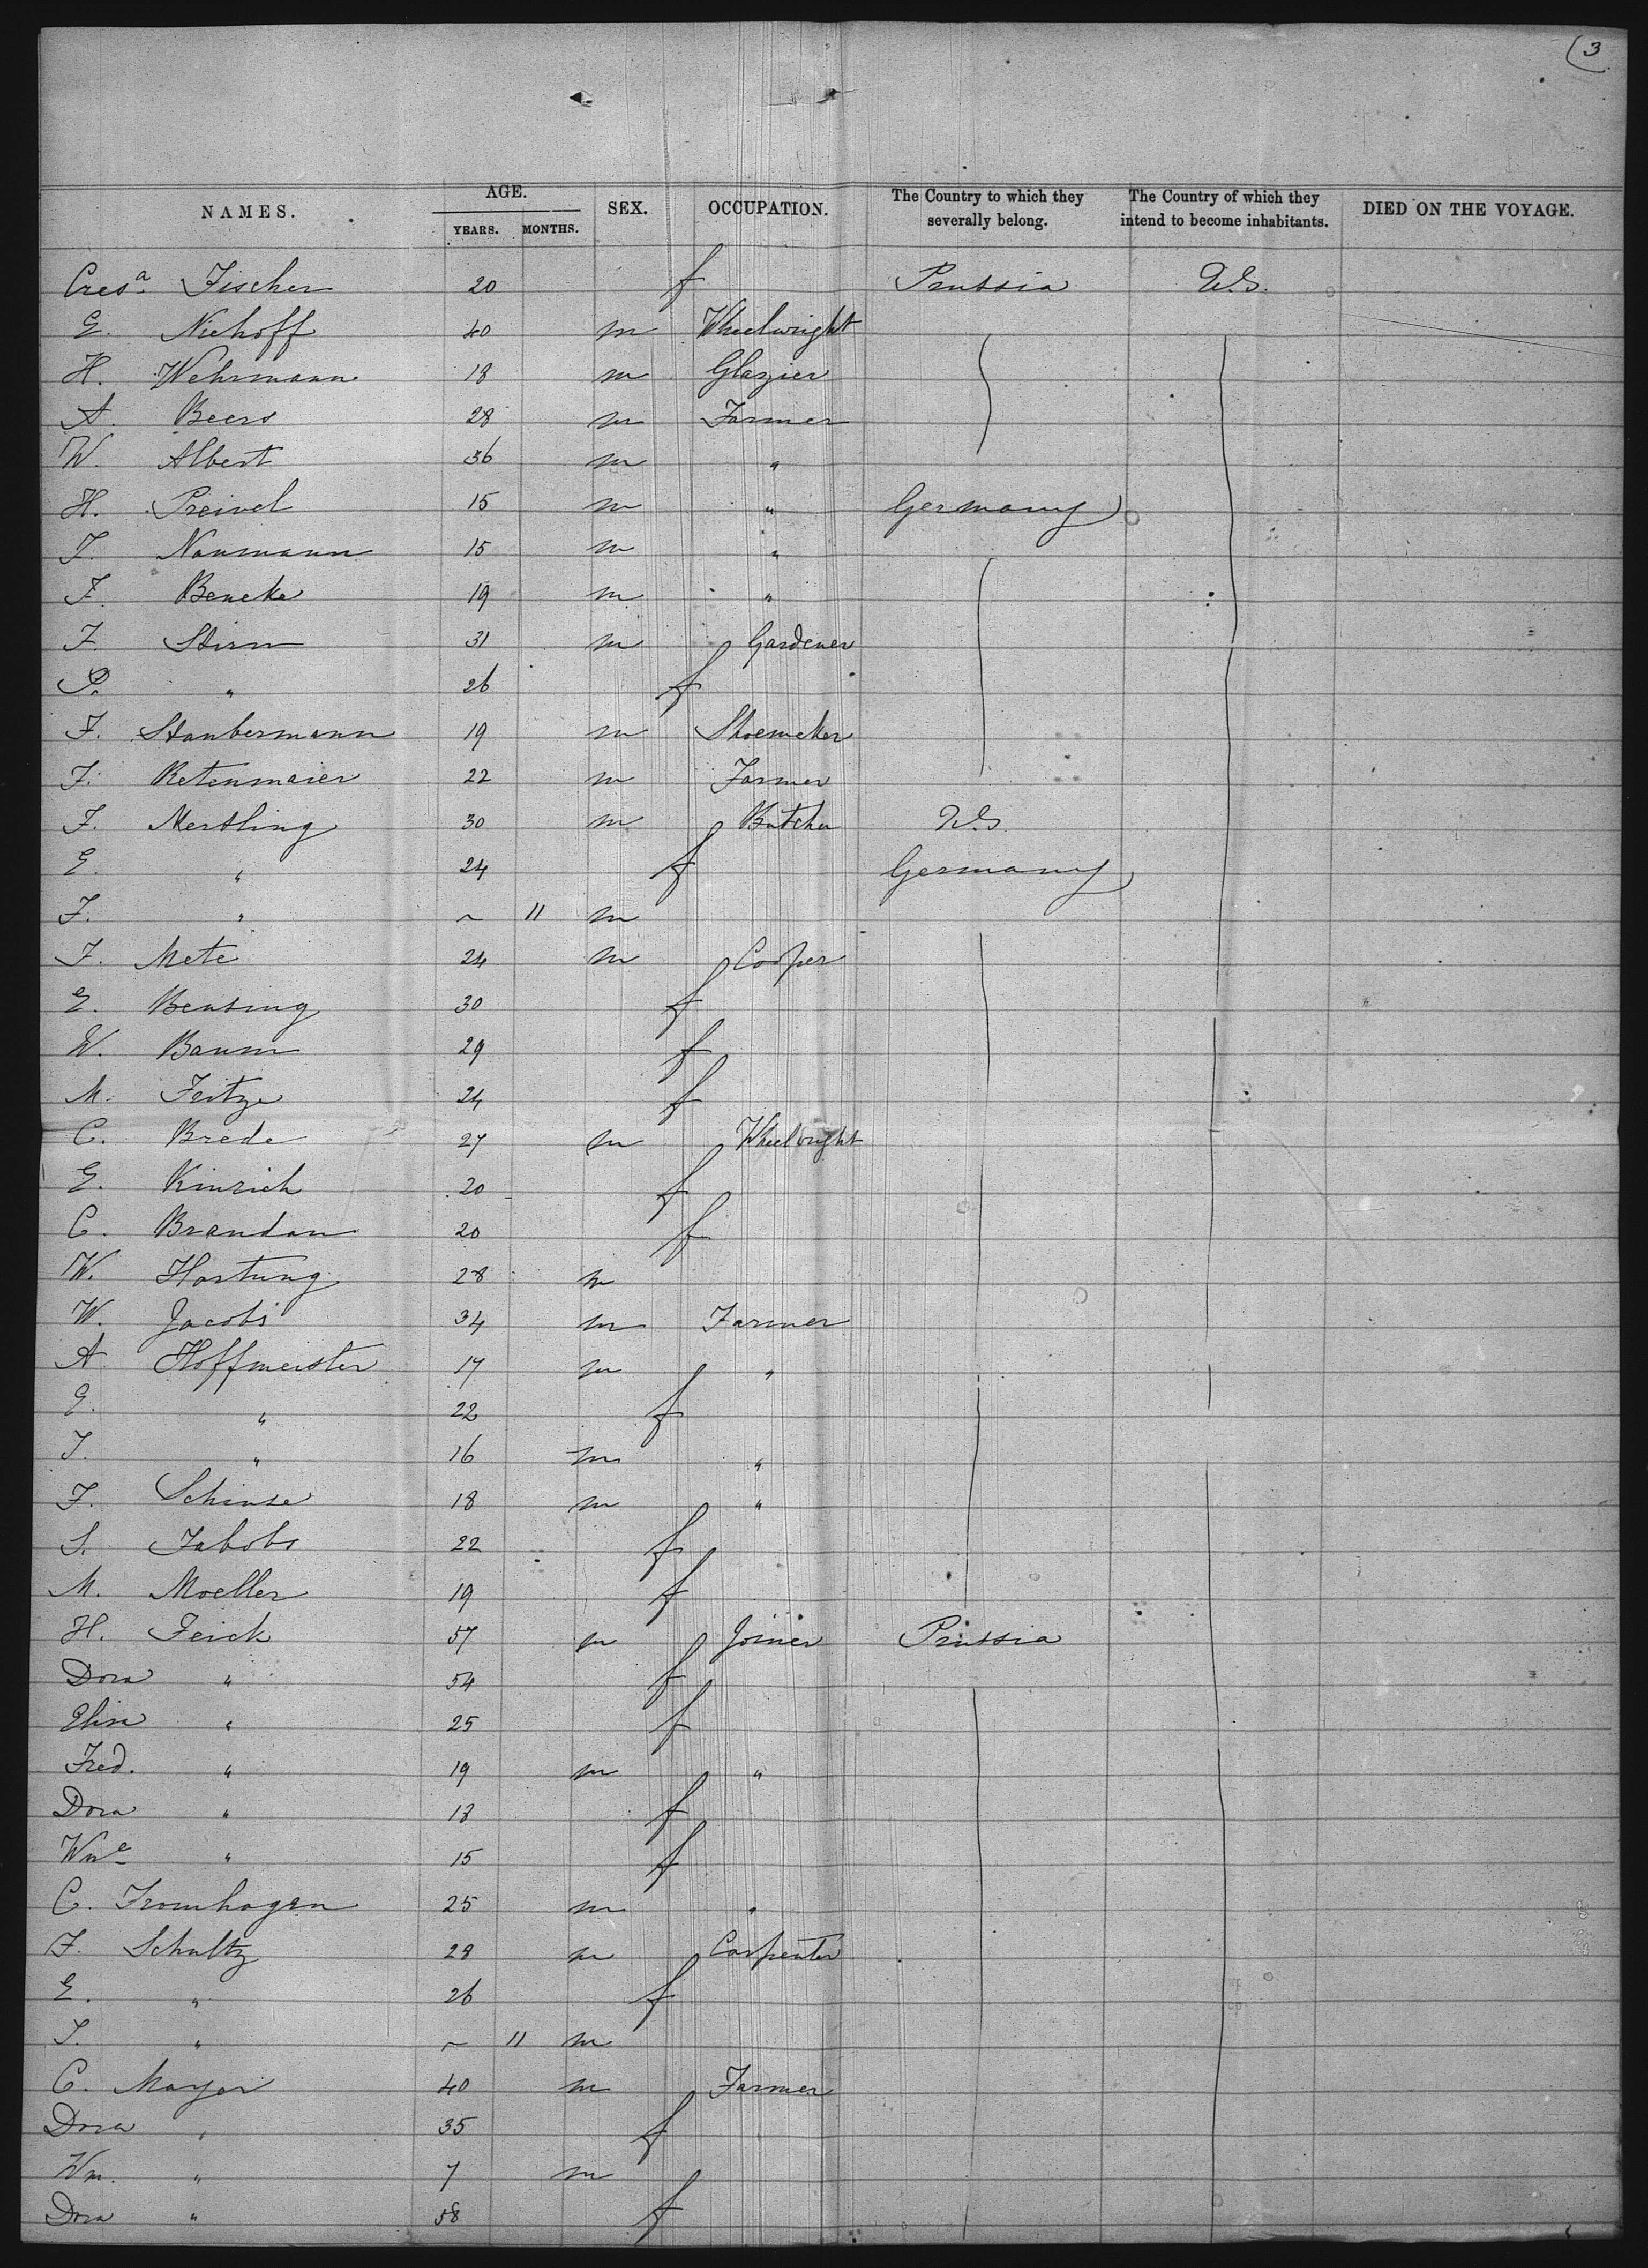 (3
NAMES. AGE. SEX. OCCUPATION. The Country to which they severally belong. The Country of which they intend to become inhabitants. DIED ON THE VOYAGE.
YEARS. MONTHS.
Cresª Fischer 20 f Prussia U.S.
E. Niehoff 40 m Wheelwright
H. Wehrmann 18 m Glazier
A. Beers 28 m Farmer
W. Albert 36 m "
H. Preivel 15 m " Germany
F. Naumann 15 m "
F. Beneke 19 m "
F. Stirn 31 m Gardener
P. " 26 f
F. Staubermann 19 m Shoemaker
F. Retenmaier 22 m Farmer
F. Mertling 30 m Butcher U.S.
E. " 24 f Germany
F. " ~ 11 m
F. Mete 24 m Cooper
E. Bensing 30 f
W. Baum 29 f
M. Feitze 24 f
C. Brede 27 m Wheelwright
E. Kinrich 20 f
C. Brandan 20 f
W. Hartung 28 m
W. Jacobi 34 m Farmer
A. Hoffmeister 17 m "
E. " 22 f
J. " 16 m "
F. Schinse 18 m "
S. Jakobs 22 f
M. Moeller 19 f
H. Feick 57 m Joiner Prussia
Dora " 54 f
Elise " 25 f
Fred. " 19 m "
Dora " 18 f
Wmᵉ " 15 f
C. Fromhagen 25 m "
F. Schultz 28 m Carpenter
E. " 26 f
J. " ~ 11 m
C. Mayer 40 m Farmer
Dora " 35 f
Wm. " 7 m
Dora " 58 f